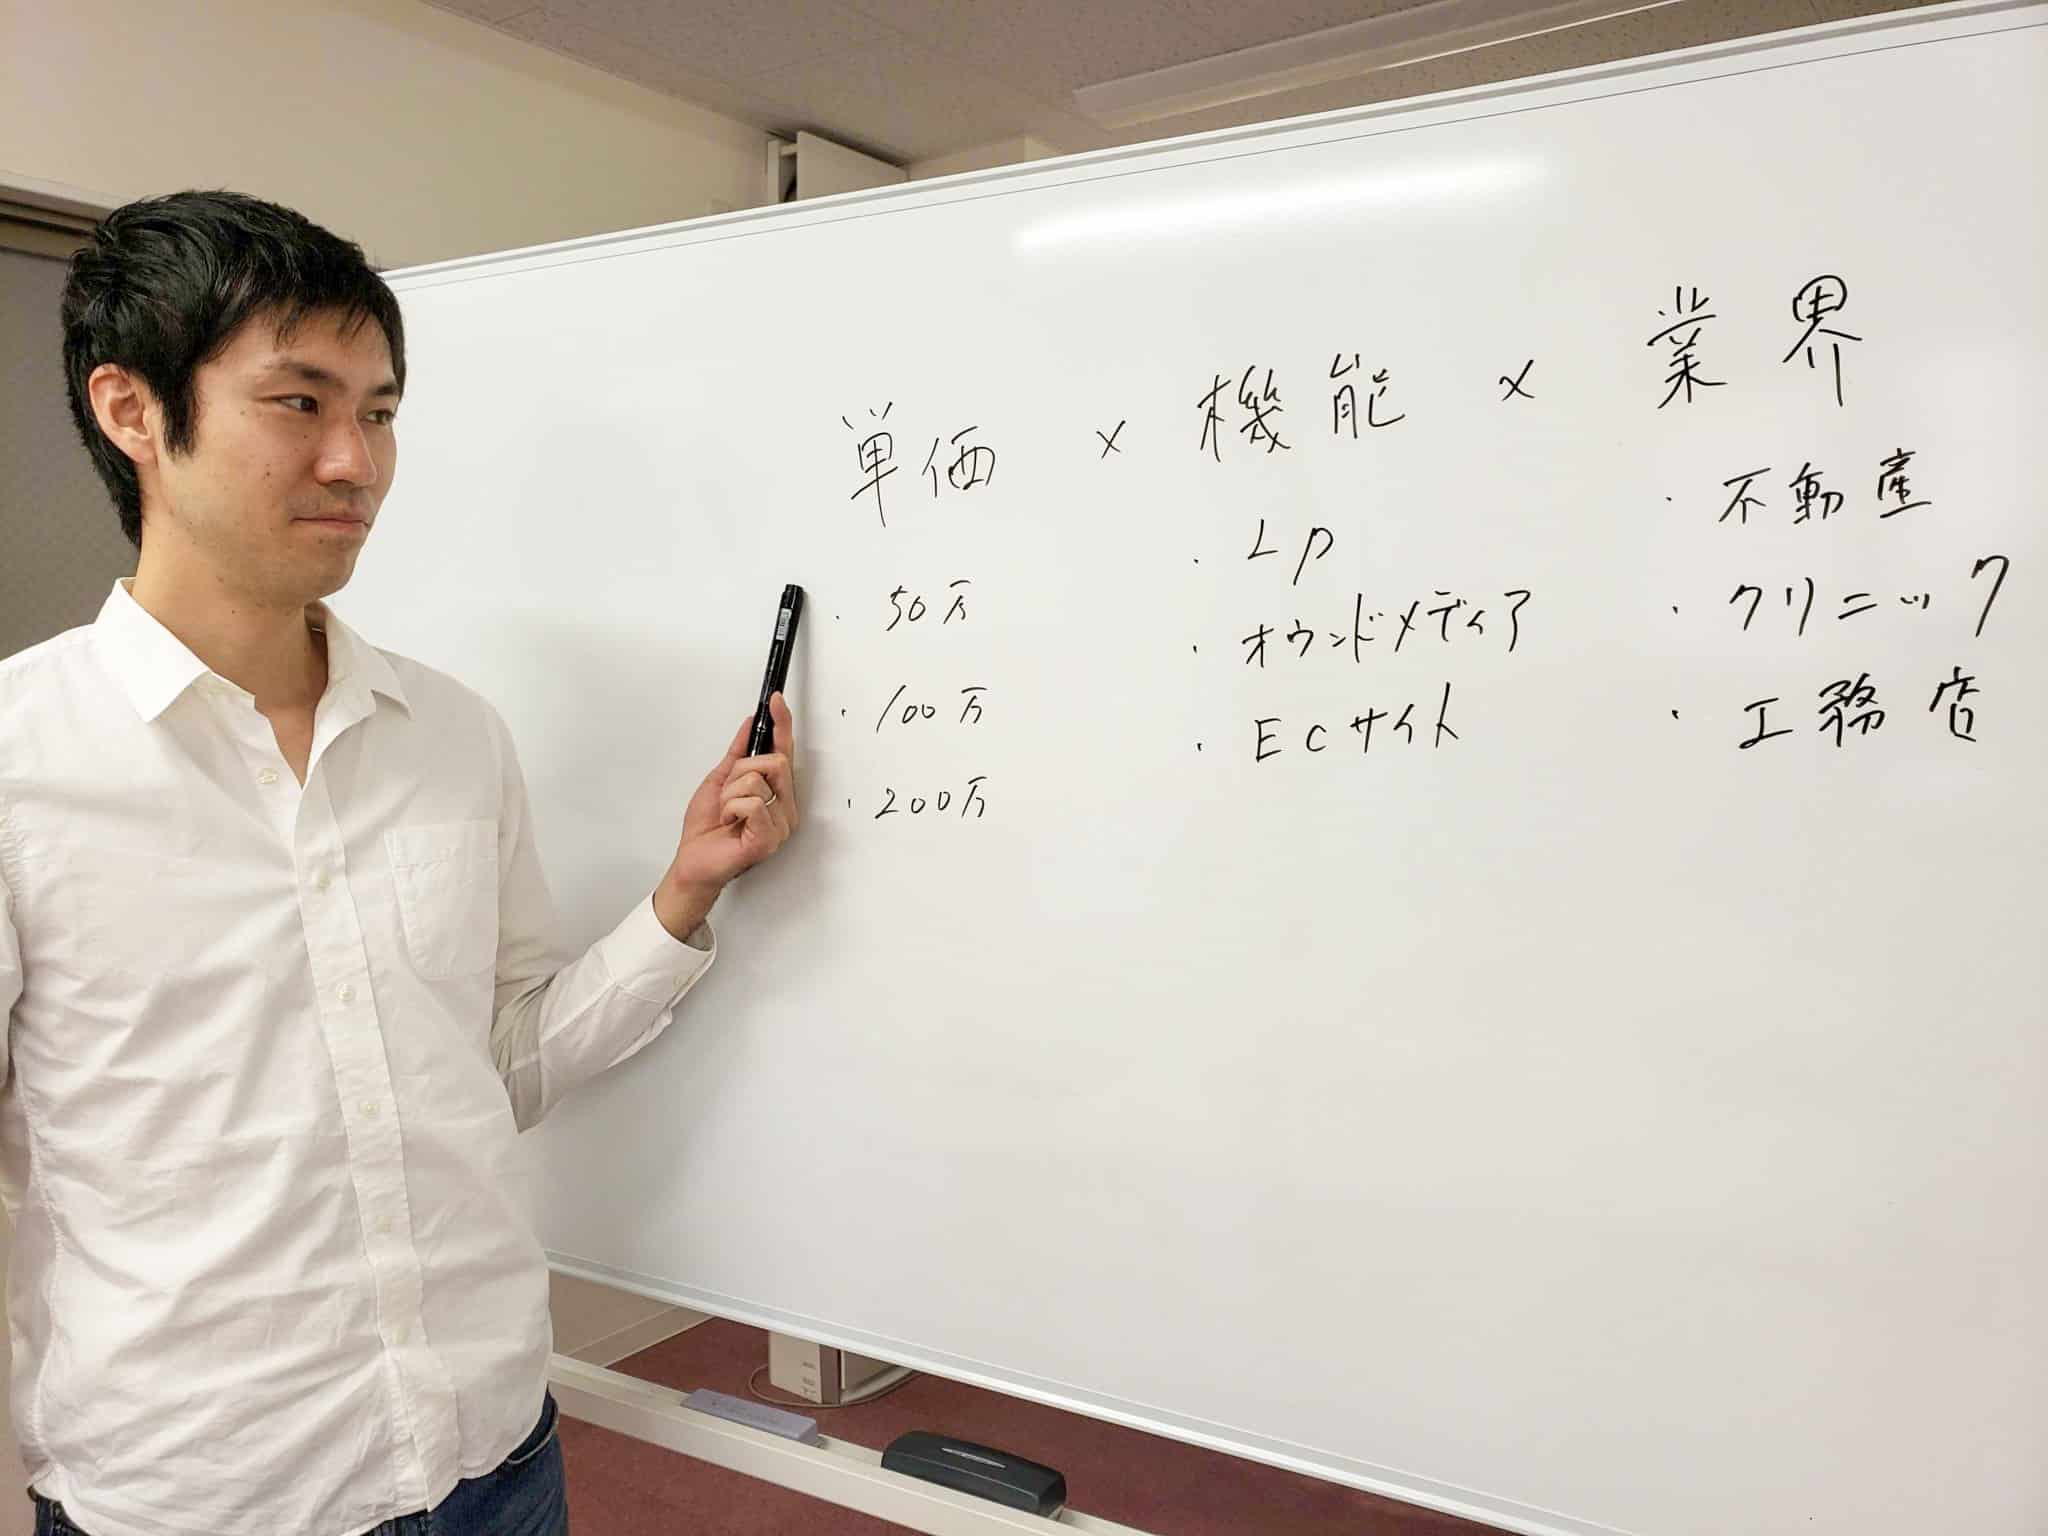 単価 × 機能 × 業界
・50万
・100万
・200万
・LP
・オウンドメディア
・ECサイト
・不動産
・クリニック
・工務店